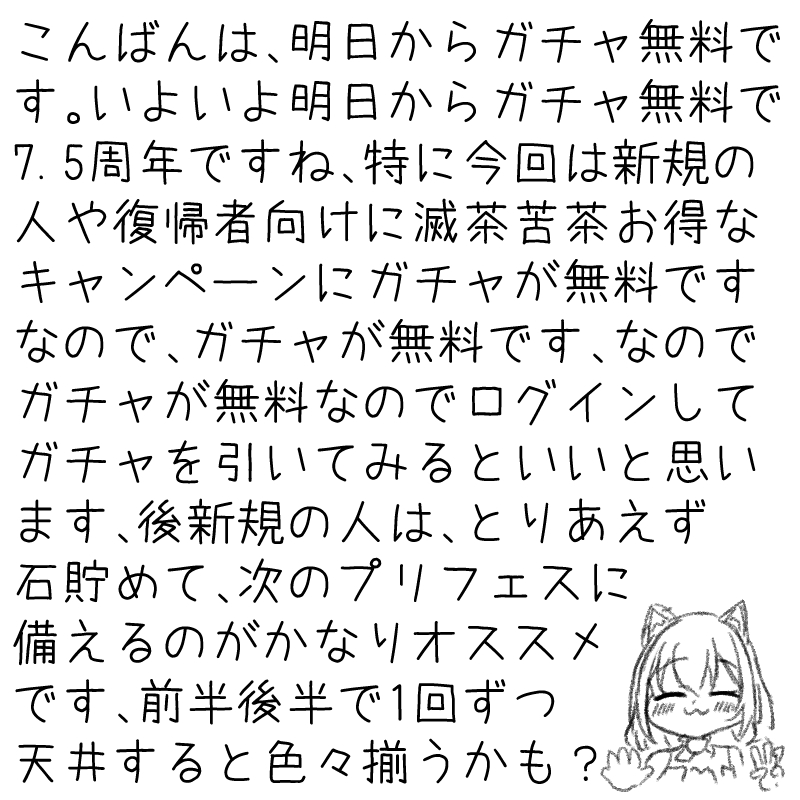 こんばんは、明日からガチャ無料で
す。いよいよ明日からガチャ無料で
7.5周年ですね、特に今回は新規の
人や復帰者向けに滅茶苦茶お得な
キャンペーンにガチャが無料です
なので、ガチャが無料です、なので
ガチャが無料なのでログインして
ガチャを引いてみるといいと思い
ます、後新規の人は、とりあえず
石貯めて、次のプリフェスに
備えるのがかなりオススメ
です、前半後半で1回ずつ
天井すると色々揃うかも？